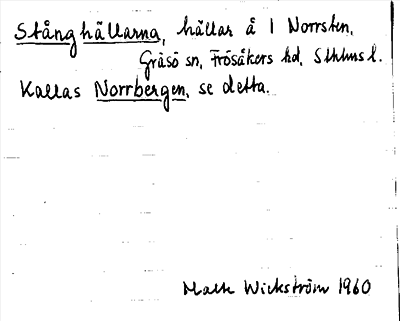 Stånghällarna, hällar å 1 Norrsten,
Gräsö sn, Frösåkers hd, Sthlms l.
Kallas Norrbergen, se detta.
Wickström 1960